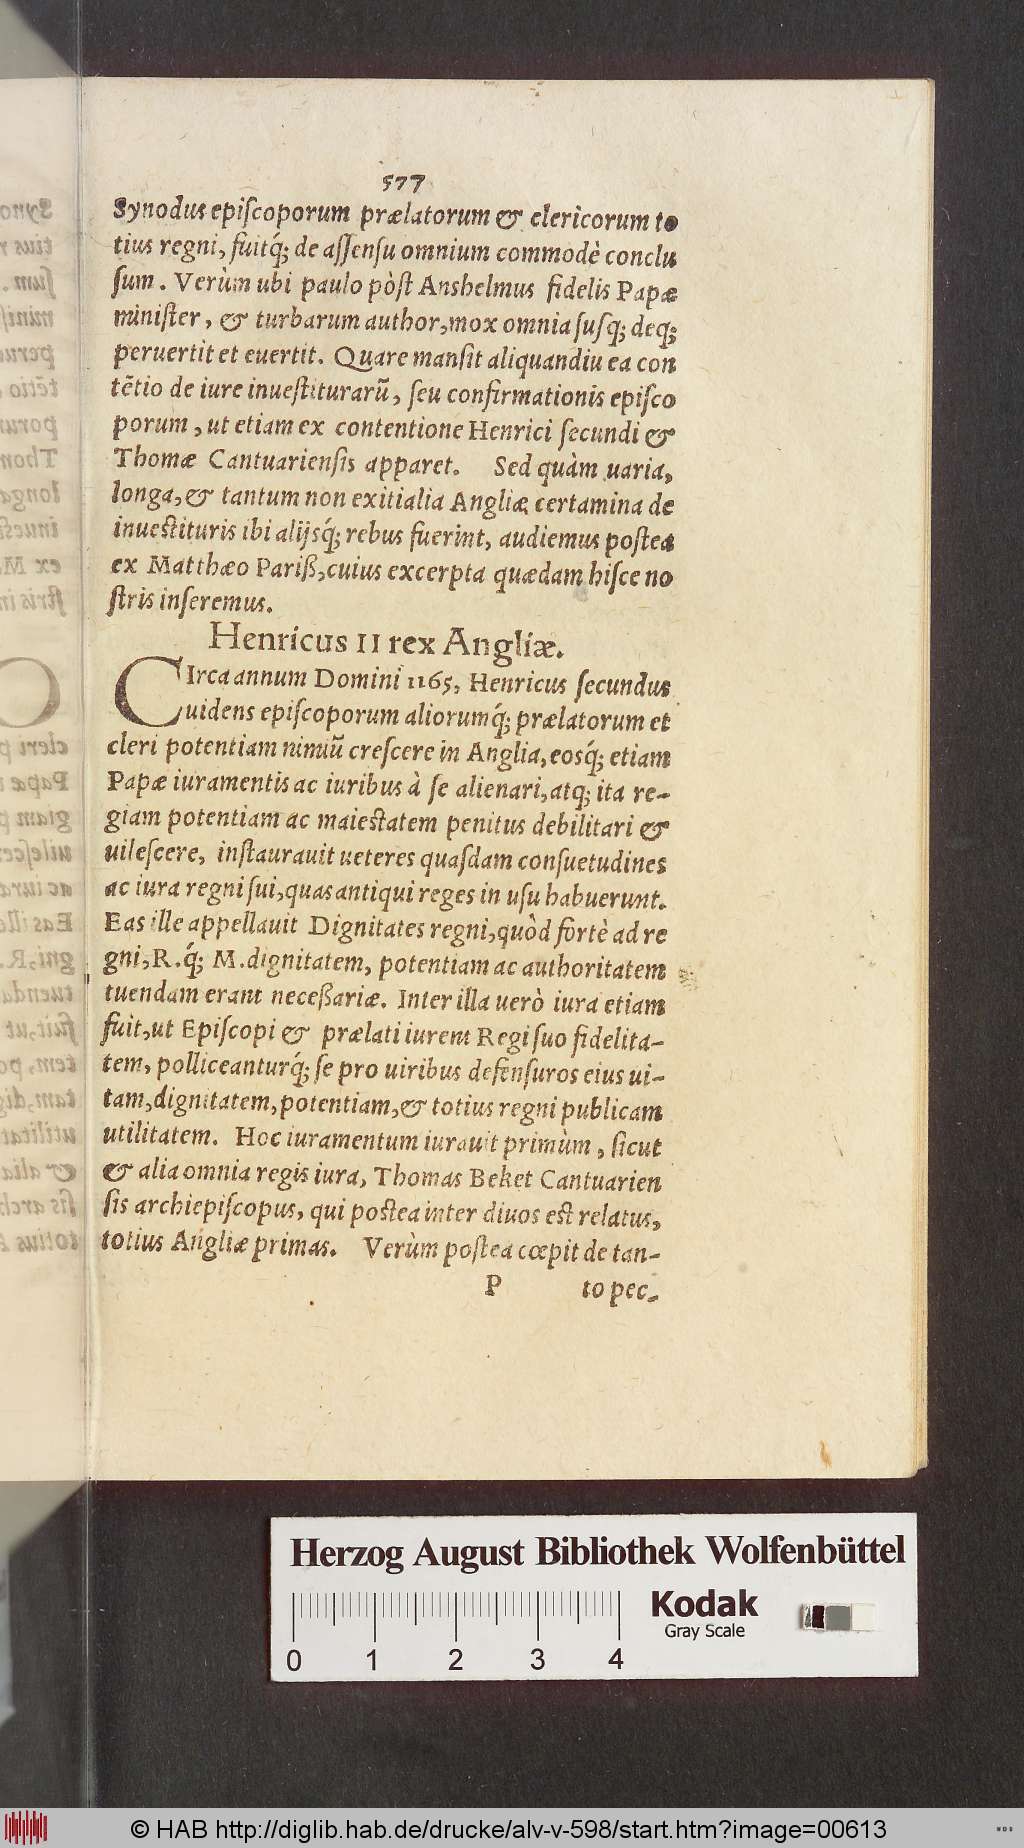 577
Synodus episcoporum prælatorum & clericorum to
tius regni, fuitq́; de assensu omnium commodè conclu
sum. Verùm ubi paulo pòst Anshelmus fidelis Papæ
minister, & turbarum author, mox omnia susq; deq;
peruertit et euertit. Quare mansit aliquandiu ea con
tẽtio de iure inuestiturarũ, seu confirmationis episco
porum, ut etiam ex contentione Henrici secundi &
Thomæ Cantuariensis apparet. Sed quàm uaria,
longa, & tantum non exitialia Angliæ certamina de
inuestituris ibi alijsq́; rebus fuerint, audiemus postea
ex Matthæo Pariß, cuius excerpta quædam hisce no
stris inseremus.
Henricus II rex Angliæ.
CIrca annum Domini 1165, Henricus secundus
uidens episcoporum aliorumq́; prælatorum et
cleri potentiam nimiũ crescere in Anglia, eosq́; etiam
Papæ iuramentis ac iuribus à se alienari, atq; ita re-
giam potentiam ac maiestatem penitus debilitari &
uilescere, instaurauit ueteres quasdam consuetudines
ac iura regni sui, quas antiqui reges in usu habuerunt.
Eas ille appellauit Dignitates regni, quòd fortè ad re
gni, R.q́; M. dignitatem, potentiam ac authoritatem
tuendam erant neceßariæ. Inter illa uerò iura etiam
fuit, ut Episcopi & prælati iurent Regi suo fidelita-
tem, polliceanturq́; se pro uiribus defensuros eius ui-
tam, dignitatem, potentiam, & totius regni publicam
utilitatem. Hoc iuramentum iurauit primùm, sicut
& alia omnia regis iura, Thomas Beket Cantuarien
sis archiepiscopus, qui postea inter diuos est relatus,
totius Angliæ primas. Verùm postea cœpit de tan-
P to pec-
Herzog August Bibliothek Wolfenbüttel
Kodak
Gray Scale
0 1 2 3 4
© HAB http://diglib.hab.de/drucke/alv-v-598/start.htm?image=00613